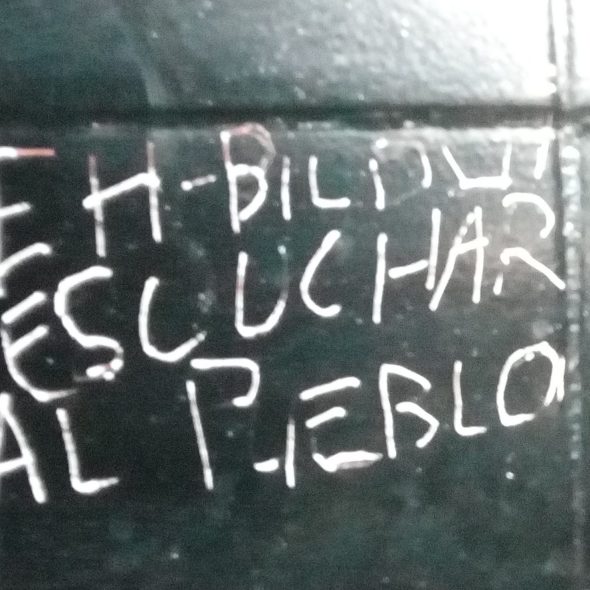 EH-BILDU!
ESCUCHAR
AL PUEBLO